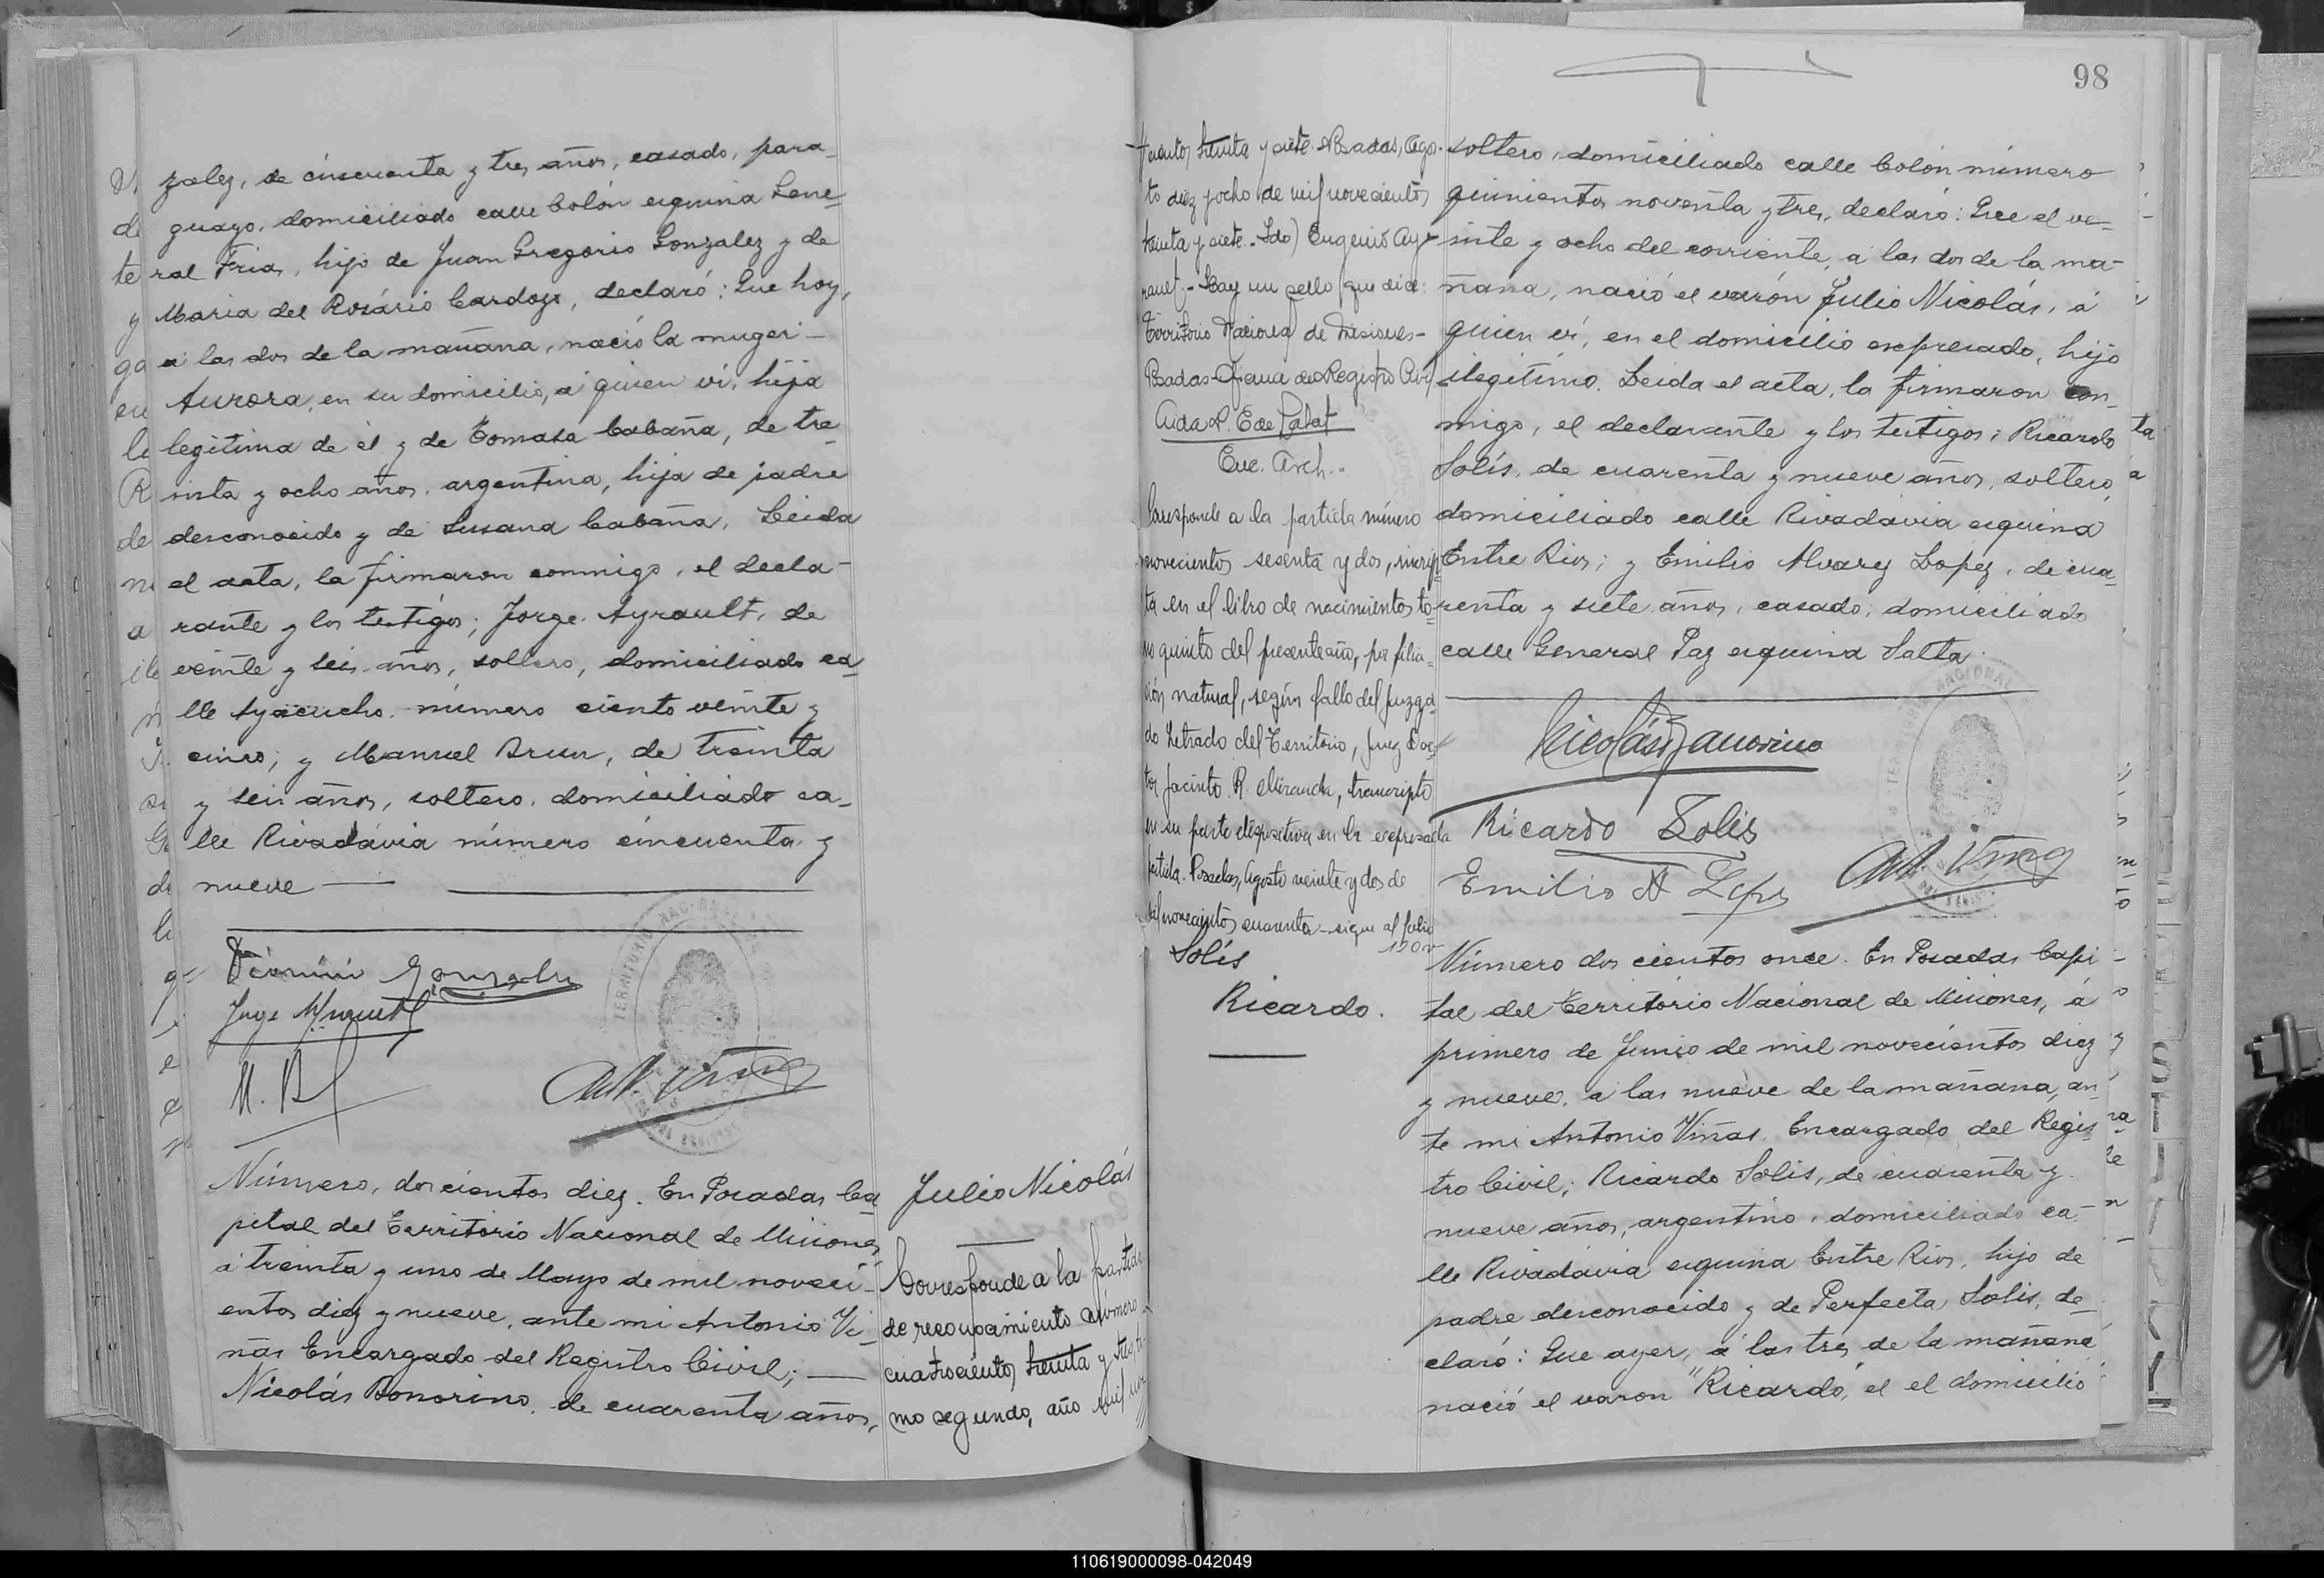 zalez, de cincuenta y tres años, casado, para-
guayo, domiciliado calle Colón esquina Gene-
ral Frias, hijo de Juan Gregorio Gonzalez y de
Maria del Rosário Cardozo, declaró: Que hoy,
a las dos de la mañana, nació la muger:-
Aurora, en su domicilio, á quien ví, hija
legítima de él y de Tomasa Cabaña, de tre-
inta y ocho años, argentina, hija de padre
desconocido y de Susana Cabaña. Leida
el acta, la firmaron conmigo, el decla-
rante y los testigos; Jorge Ayrault, de
veinte y seis años, soltero, domiciliado ca-
lle Ayacucho, número ciento veinte y
cinco; y Manuel Brun, de treinta
y seis años, soltero, domiciliado ca-
lle Rivadávia número cincuenta y
nueve
Gonzalez
M. B
Número, dos cientos diez. En Posadas Ca-
pital del Territorio Nacional de Misiones,
á treinta y uno de Mayo de mil noveci-
entos diez y nueve, ante mi Antonio Vi-
ñas Encargado del Registro Civil;
Nicolás Bonorino, de cuarenta años,
Julio Nicolás
Corresponde a la partida
de reconocimiento número
cuatrocientos treinta y tres, to-
mo segundo, año mil no
98
vecientos treinta y siete. Posadas, Agos-
to diez y ocho de mil novecientos
treinta y siete.- Fdo) Eugenio Ay-
rault.- Hay un sello que dice:
Territorio Nacional de Misiones-
Posadas-Oficina del Registro Civil
Enc. Arch..
Corresponde a la partida número
novecientos sesenta y dos, inscrip-
ta en el libro de nacimientos to-
mo quinto del presente año, por filia-
ción natural, según fallo del Juzga-
do Letrado del Territorio, Juez Doc-
tor Jacinto R. Miranda, transcripto
en su parte dispositiva en la expresada
partida. Posadas, Agosto veinte y dos de
mil novecientos cuarenta - sigue al folio
120v
soltero, domiciliado calle Colón número
quinientos noventa y tres, declaró: Que el ve-
inte y ocho del corriente, á las dos de la ma-
ñana, nació el varón Julio Nicolás, á
quien ví, en el domicilio expresado, hijo
ilegítimo. Leida el acta, la firmaron con-
migo, el declarante y los testigos: Ricardo
Solís, de cuarenta y nueve años, soltero,
domiciliado calle Rivadavia esquina
Entre Rios; y Emilio Alvarez Lopez, de cua-
renta y siete años, casado, domiciliado
calle General Paz esquina Salta.
Nicolás Bonorino
Ricardo Solís
Emilio A Lopez
Ant. Viñas
Solís
Ricardo.
Número dos cientos once. En Posadas Capi-
tal del Territorio Nacional de Misiones, á
primero de Junio de mil novecientos diez
y nueve, a las nueve de la mañana, an-
te mi Antonio Viñas Encargado del Regis-
tro Civil; Ricardo Solis, de cuarenta y
nueve años, argentino, domiciliado ca-
lle Rivadavia esquina Entre Rios, hijo de
padre desconocido y de Perfecta Solis, de-
claró: Que ayer, á las tres de la mañana
nació el varon "Ricardo", el el domicilio
110619000098-042049